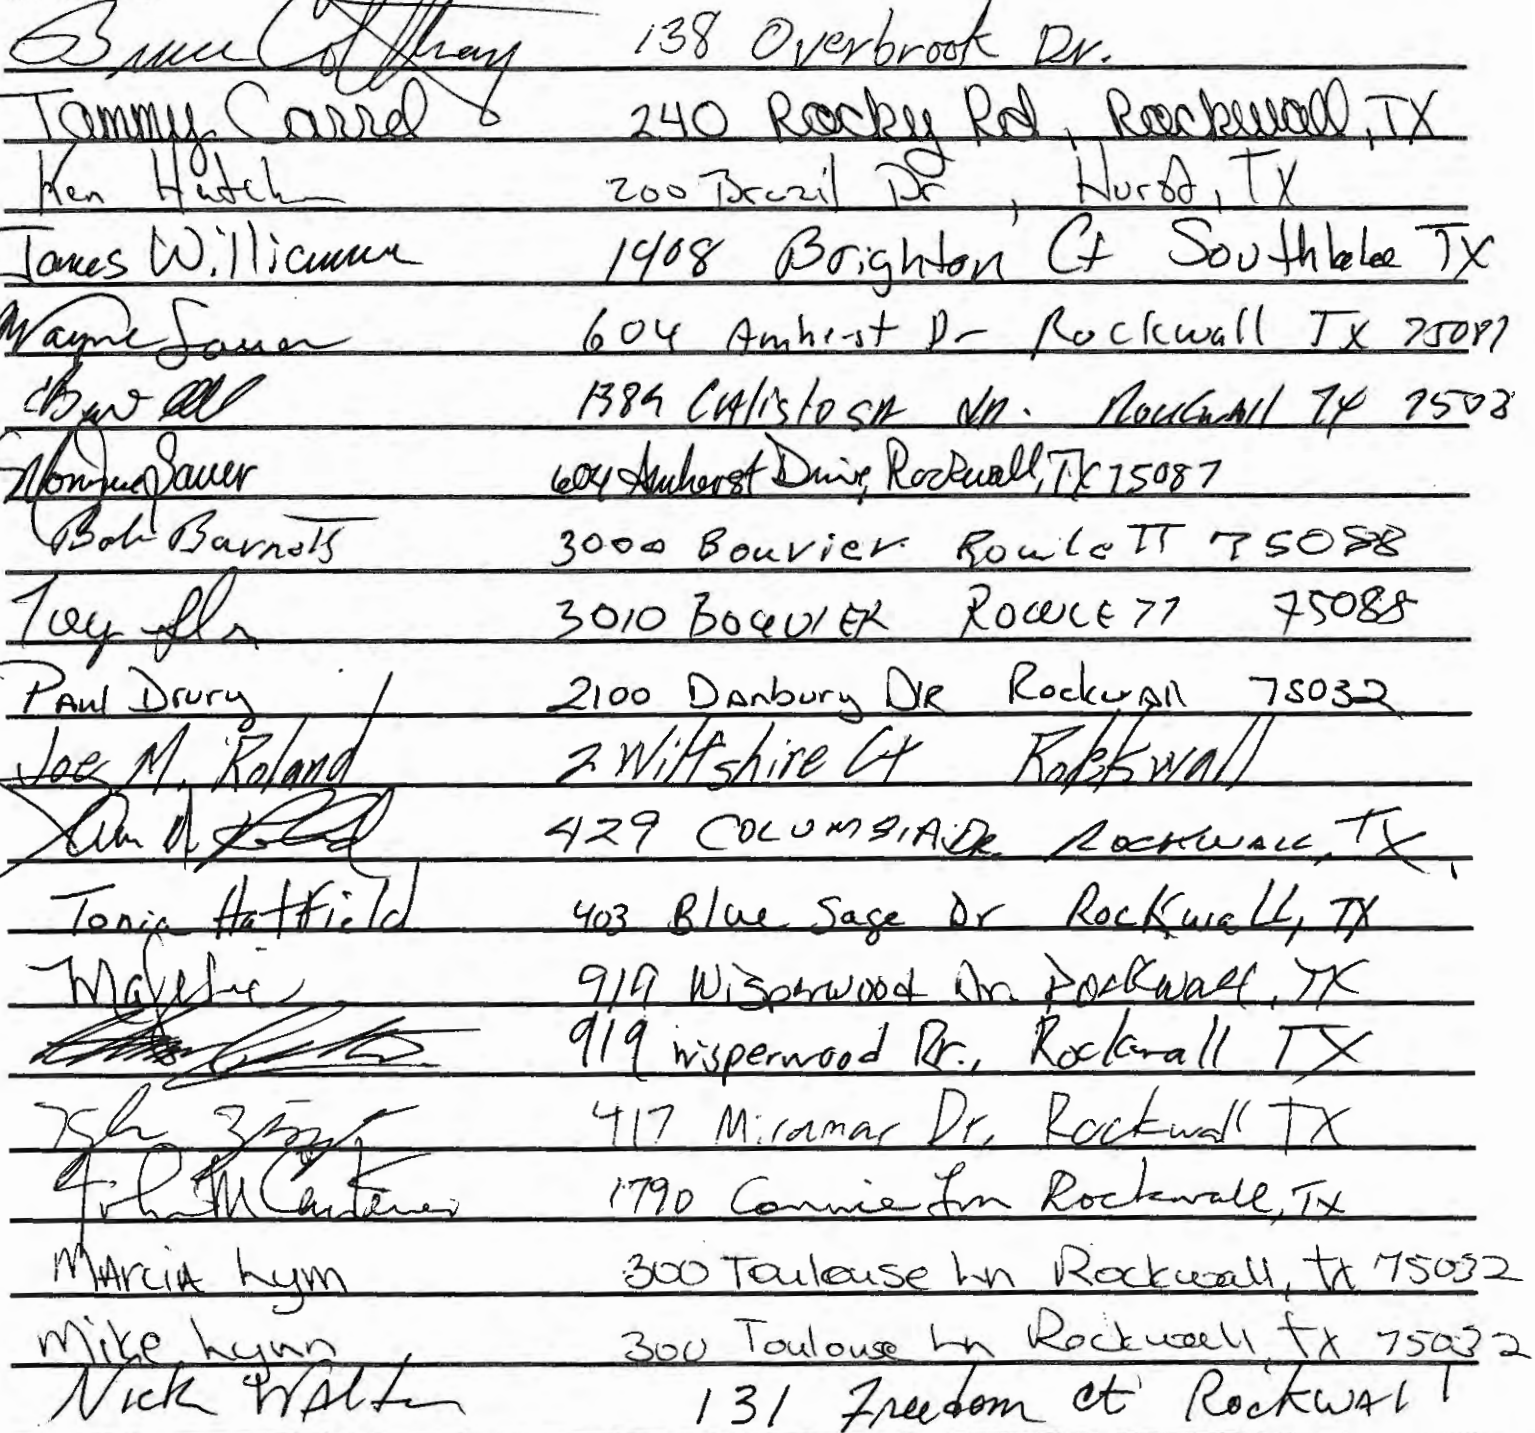 Bruce 138 Overbrook Dr.
Tammy Carrel 240 Rocky Rd, Rockwall, TX
Ken Hatch 200 Brazil Dr, Hurst, TX
James Williamson 1408 Brighton Ct Southlake TX
Wayne Sauer 604 Amherst Dr Rockwall TX 75087
1389 Calistoga Ln. Rockwall TX 7503
Monique Sauer 604 Amherst Drive, Rockwall, TX 75087
Bob Barnett 3000 Bouvier Rowlett 75088
3010 BOUVIER ROWLETT 75088
Paul Drury 2100 Danbury DR Rockwall 75032
Joe M. Roland 2 Wiltshire Ct Rockwall
429 COLUMBIA DR. ROCKWALL, TX.
Tonia Hatfield 403 Blue Sage Dr Rockwall, TX
919 Wisperwood Dr. Rockwall, TX
919 wisperwood Dr., Rockwall TX
417 Miramar Dr. Rockwall TX
John 1790 Connie Ln Rockwall, TX
Marcia Lynn 300 Toulouse Ln Rockwall, tx 75032
Mike Lynn 300 Toulouse Ln Rockwall, tx 75032
Nick Walton 131 Freedom ct Rockwall